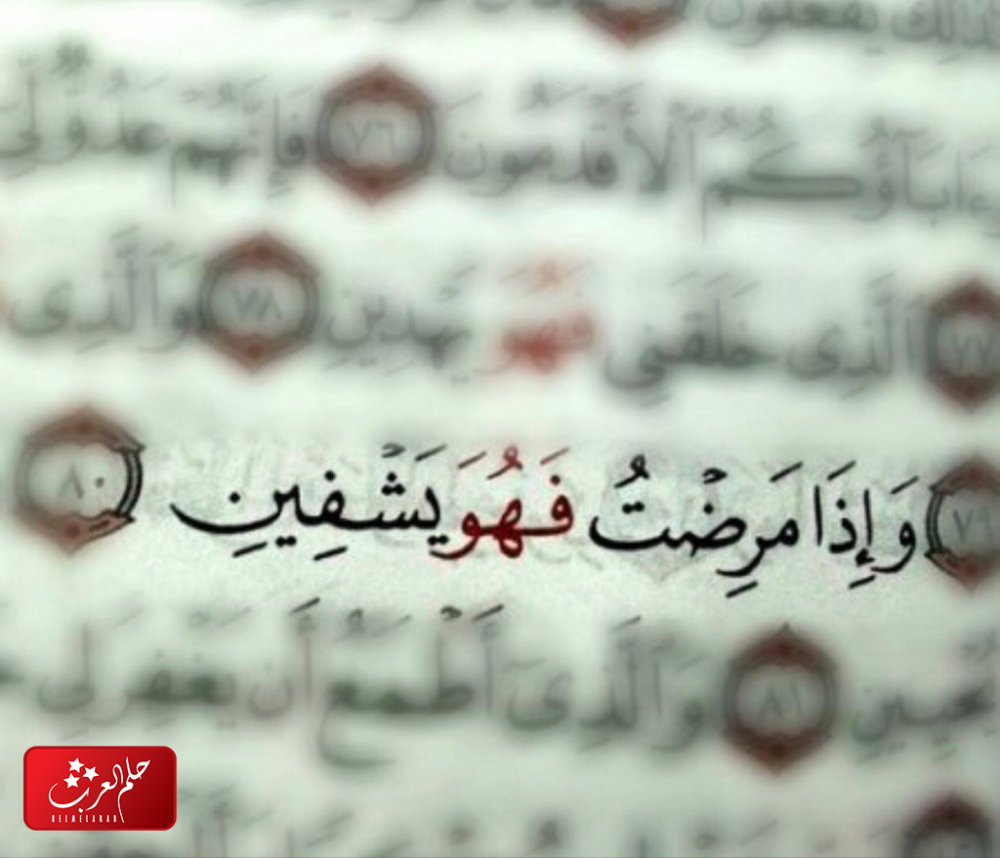 ذلك يفعلون
ءاباؤكم الأقدمون ٧٦ فإنهم عدو لي
٧٧ الذى خلقنى فهو يهدين ٧٨ والذى
وَإِذَا مَرِضْتُ فَهُوَ يَشْفِينِ ٨٠
يحيين ٨١ والذى أطمع أن يغفر لى
حلم العرب
HELMELARAB